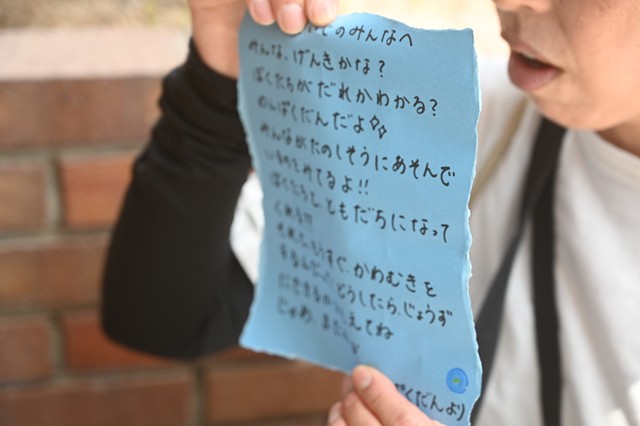 のみんなへ
みんな、げんきかな?
ぼくたちがだれかわかる?
わんぱくだんだよ
みんながたのしそうにあそんで
いるのをみてるよ!!
ぼくたちとともだちになって
くれる!?
もうすぐ、かわむきを
するんだ。どうしたら、じょうず
にできるかおしえてね
じゃあ、また
ぱくだんより